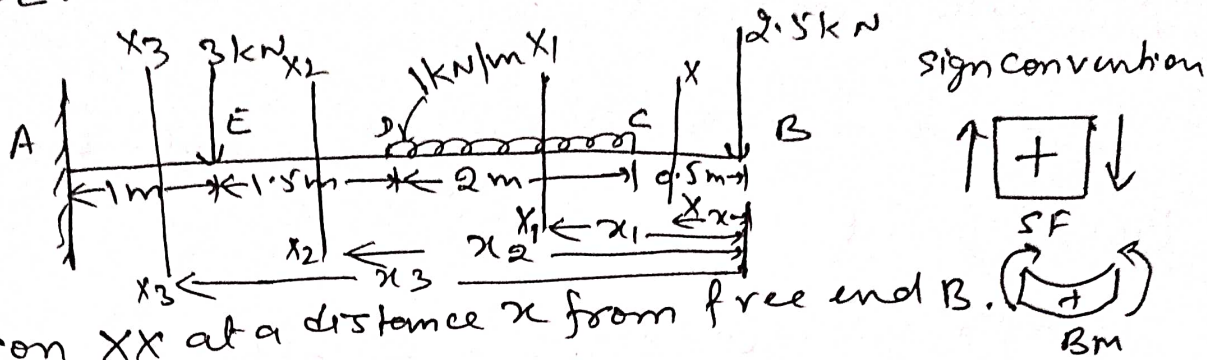 X3 3kN X2 1kN/m X1 X 2.5kN
sign convention
A E D C B
1m 1.5m 2m 0.5m
+
SF
X1 x1 X x
X2 x2
X3 x3
+
BM
on XX at a distance x from free end B.